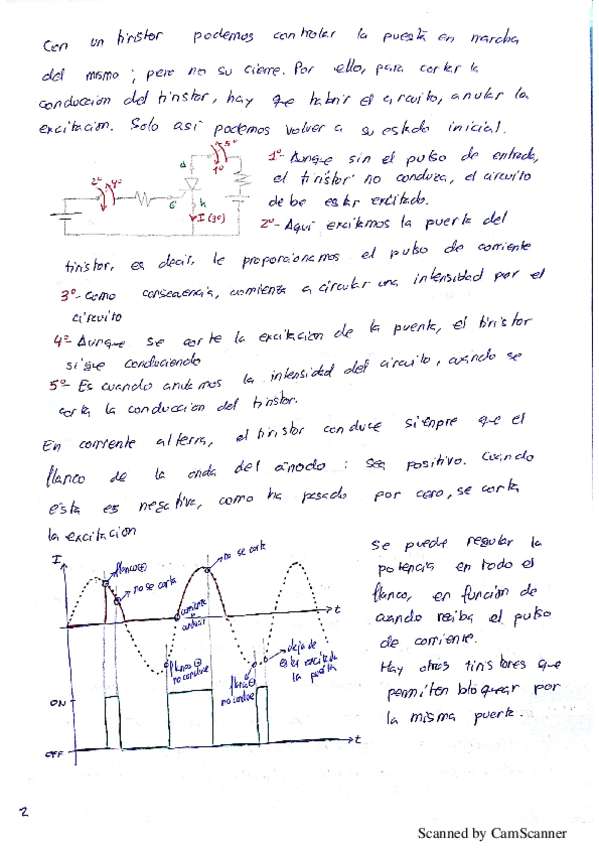 Con un tiristor podemos controlar la puesta en marcha
del mismo; pero no su cierre. Por ello, para cortar la
conduccion del tiristor, hay que habrir el circuito, anular la
excitacion. Solo asi podemos volver a su estado inicial.
2º 4º
5º
1º
A
G
K
I (3º)
1º- Aunque sin el pulso de entrada,
el tiristor no conduzca, el circuito
debe estar excitado.
2º- Aqui excitamos la puerta del
tiristor, es decir, le proporcionamos el pulso de corriente
3º- Como consecuencia, comienza a circular una intensidad por el
circuito
4º- Aunque se corte la excitacion de la puerta, el tiristor
sigue conduciendo
5º- Es cuando anulemos la intensidad del circuito, cuando se
corta la conduccion del tiristor.
En corriente alterna, el tiristor conduce siempre que el
flanco de la onda del ánodo : sea positivo. Cuando
esta es negativa, como ha pasado por cero, se corta
la excitacion
I
flanco ⊕
no se corta
no se corta
comienza a
t
flanco ⊖
no conduce
flanco ⊖
no conduce
deja de
estar excitada
la puerta
ON
OFF
t
Se puede regular la
potencia en todo el
flanco, en función de
cuando reciba el pulso
de corriente.
Hay otros tiristores que
permiten bloquear por
la misma puerta.
2
Scanned by CamScanner